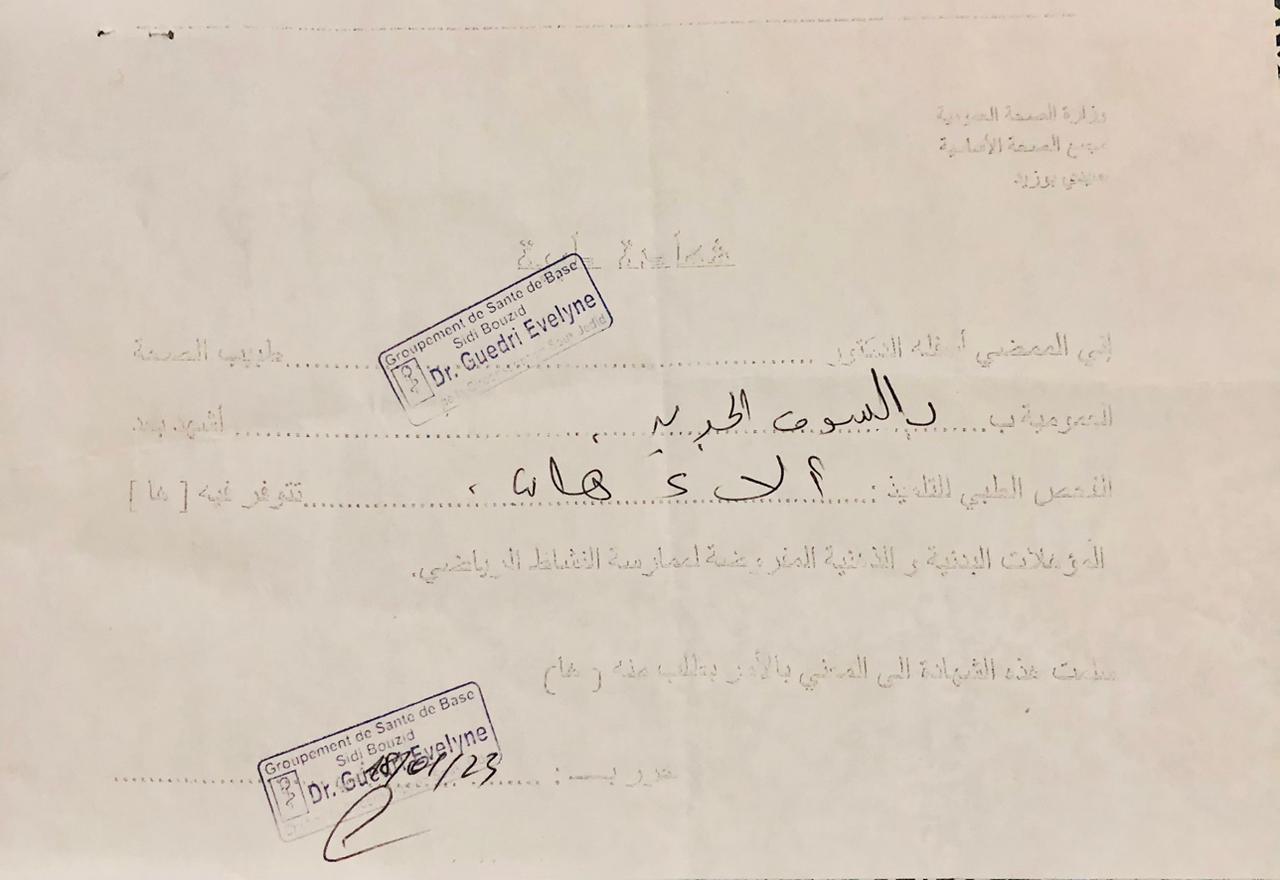 وزارة الصحة العمومية
مجمع الصحة الأساسية
سيدي بوزيد
شهادة طبية
Groupement de Sante de Base
Sidi Bouzid
Dr. Guedri Evelyne
إني الممضي أسفله الدكتور ........ طبيب الصحة
العمومية ب بالسوق الجديد ........ أشهد بعد
الفحص الطبي للتلميذ : ألاء ........ تتوفر فيه [ ها ]
المؤهلات البدنية و الذهنية المفروضة لممارسة النشاط الرياضي.
سلمت هذه الشهادة الى المعني بالأمر بطلب منه ( ها)
حرر بـ : ........
Groupement de Sante de Base
Sidi Bouzid
Dr. Guedri Evelyne